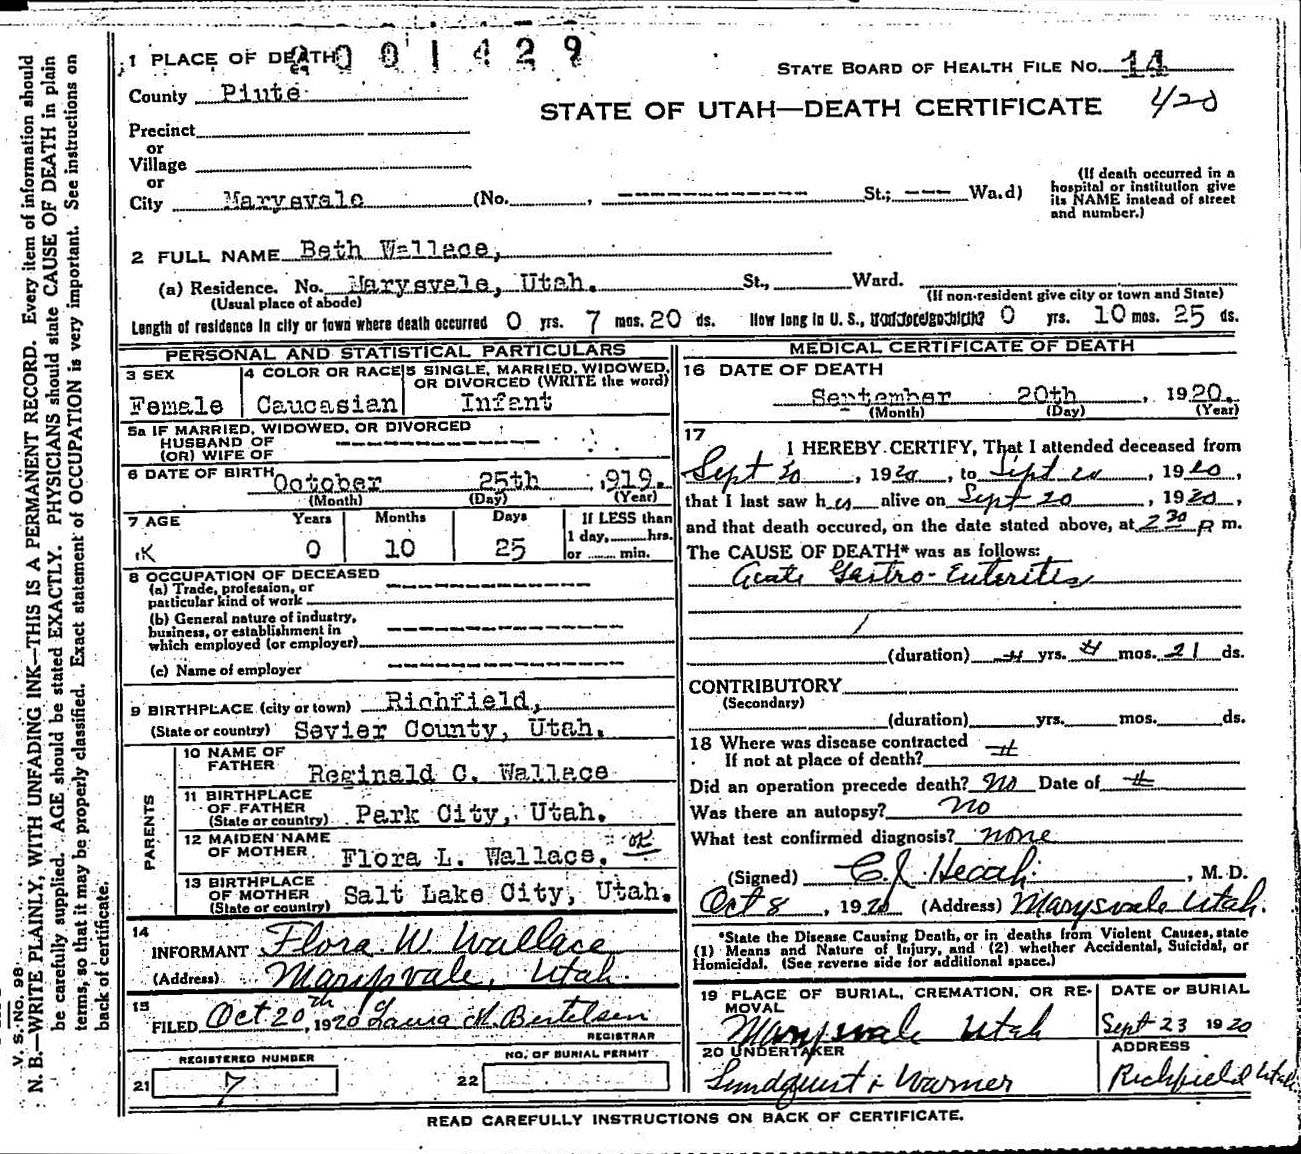 V. S. No. 98
N. B.—WRITE PLAINLY, WITH UNFADING INK—THIS IS A PERMANENT RECORD. Every item of information should
be carefully supplied. AGE should be stated EXACTLY. PHYSICIANS should state CAUSE OF DEATH in plain
terms, so that it may be properly classified. Exact statement of OCCUPATION is very important. See instructions on
back of certificate.
1 PLACE OF DEATH
001429
STATE BOARD OF HEALTH FILE NO. 14
County Piute
STATE OF UTAH—DEATH CERTIFICATE 420
Precinct
or
Village
or
City Marysvale (No. , St.; Wa.d)
(If death occurred in a
hospital or institution give
its NAME instead of street
and number.)
2 FULL NAME Beth Wallace,
(a) Residence. No. Marysvale, Utah. St., Ward.
(Usual place of abode) (If non-resident give city or town and State)
Length of residence in city or town where death occurred 0 yrs. 7 mos. 20 ds. How long in U. S., if of foreign birth? 0 yrs. 10 mos. 25 ds.
PERSONAL AND STATISTICAL PARTICULARS
3 SEX 4 COLOR OR RACE 5 SINGLE, MARRIED, WIDOWED,
OR DIVORCED (WRITE the word)
Female Caucasian Infant
5a IF MARRIED, WIDOWED, OR DIVORCED
HUSBAND OF
(OR) WIFE OF
6 DATE OF BIRTH October 25th ,919.
(Month) (Day) (Year)
7 AGE Years Months Days If LESS than
1 day, hrs.
or min.
K 0 10 25
8 OCCUPATION OF DECEASED
(a) Trade, profession, or
particular kind of work
(b) General nature of industry,
business, or establishment in
which employed (or employer)
(c) Name of employer
9 BIRTHPLACE (city or town) Richfield,
(State or country) Sevier County, Utah.
PARENTS
10 NAME OF
FATHER Reginald C. Wallace
11 BIRTHPLACE
OF FATHER
(State or country) Park City, Utah.
12 MAIDEN NAME
OF MOTHER Flora L. Wallace. OK
13 BIRTHPLACE
OF MOTHER
(State or country) Salt Lake City, Utah.
14
INFORMANT Flora W. Wallace
(Address) Marysvale, Utah.
15
FILED Oct 20th, 1920 Laura M. Bertelsen
REGISTRAR
REGISTERED NUMBER NO. OF BURIAL PERMIT
21 7 22
MEDICAL CERTIFICATE OF DEATH
16 DATE OF DEATH
September 20th, 1920.
(Month) (Day) (Year)
17
I HEREBY CERTIFY, That I attended deceased from
Sept 20, 1920, to Sept 20, 1920,
that I last saw her alive on Sept 20, 1920,
and that death occured, on the date stated above, at 2 30 P m.
The CAUSE OF DEATH* was as follows:
Acute Gastro-Enteritis
(duration) # yrs. # mos. 21 ds.
CONTRIBUTORY
(Secondary)
(duration) yrs. mos. ds.
18 Where was disease contracted
If not at place of death? #
Did an operation precede death? No Date of #
Was there an autopsy? No
What test confirmed diagnosis? none
(Signed) C. J. , M. D.
Oct 8, 1920 (Address) Marysvale Utah.
*State the Disease Causing Death, or in deaths from Violent Causes, state
(1) Means and Nature of Injury, and (2) whether Accidental, Suicidal, or
Homicidal. (See reverse side for additional space.)
19 PLACE OF BURIAL, CREMATION, OR RE-
MOVAL
Marysvale Utah
DATE OF BURIAL
Sept 23 1920
20 UNDERTAKER
Lundquist & Warner
ADDRESS
Richfield Utah
READ CAREFULLY INSTRUCTIONS ON BACK OF CERTIFICATE.